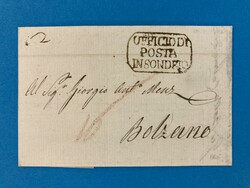 UFFICIO DI
POSTA
IN SONDRIO
Al Sig.r Giorgio Ant.o Menz
Bolzano